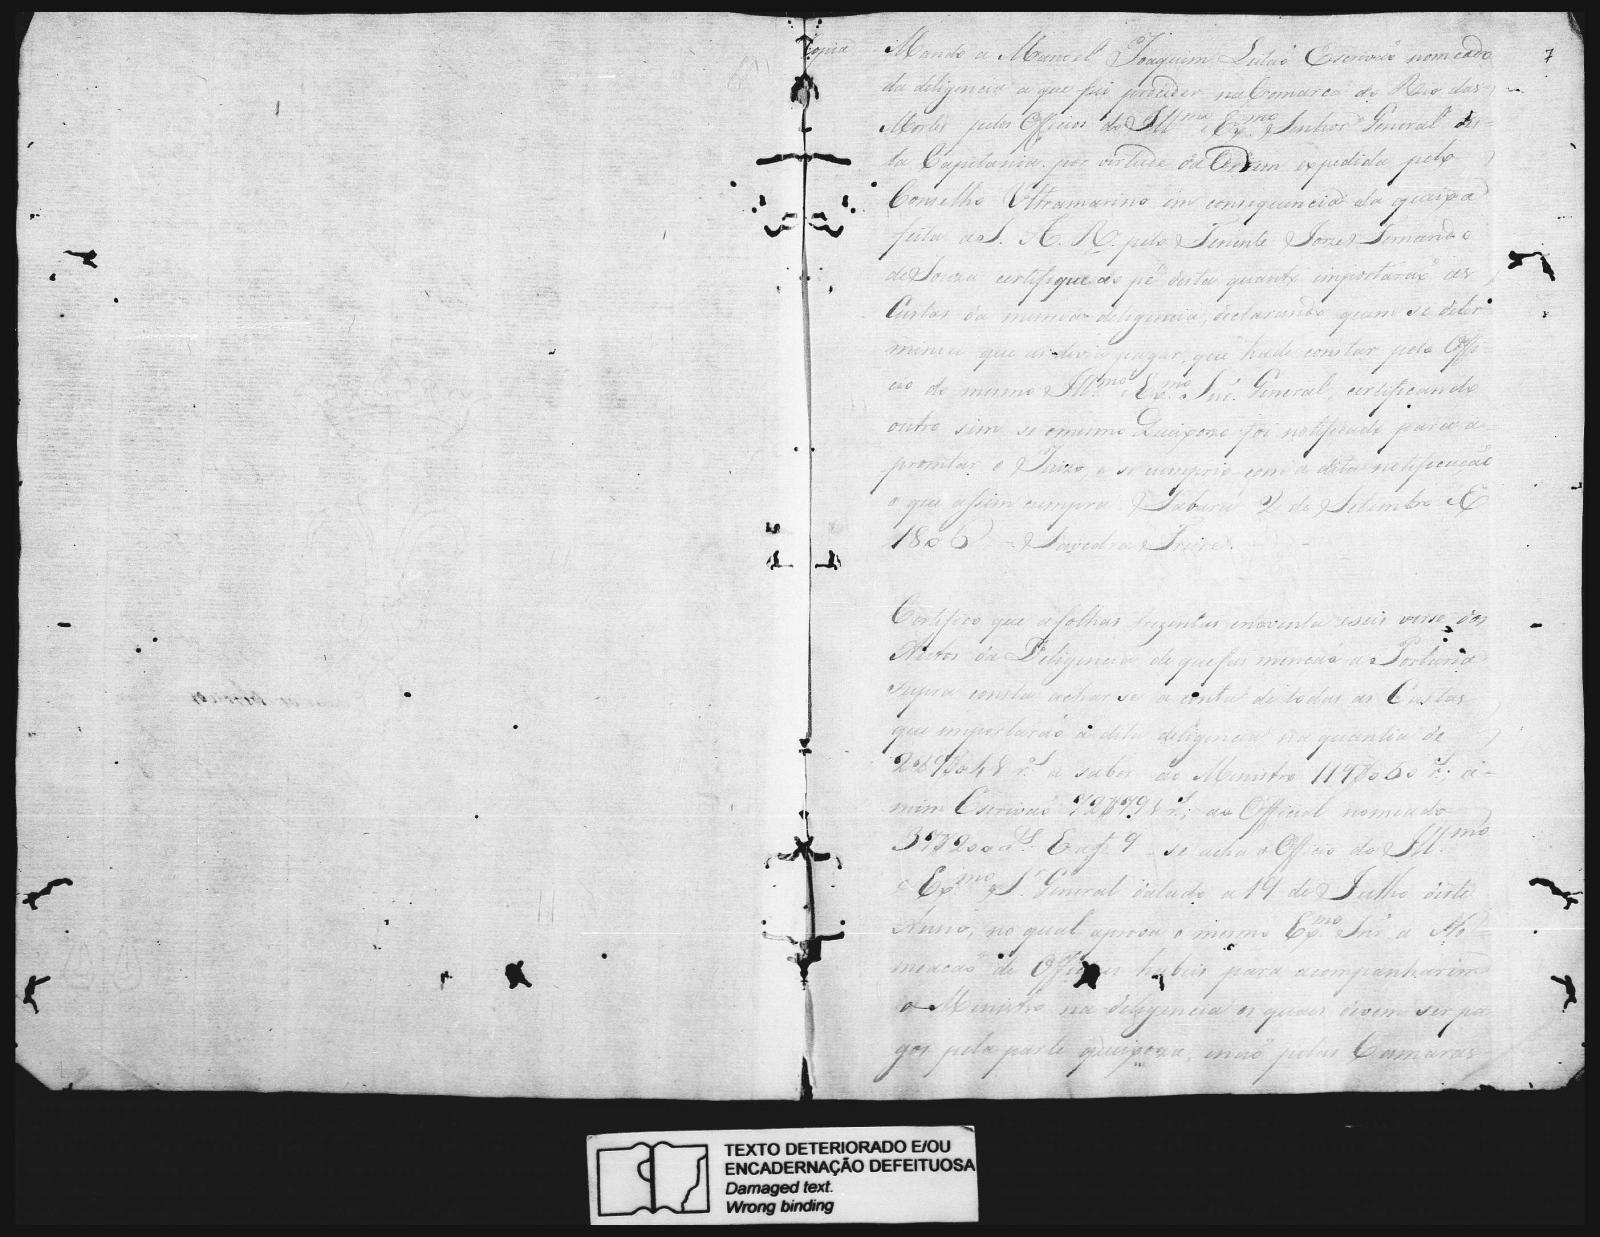 Copia
7
Mando a Manoel Joaquim Leitaõ Escrivaõ nomeado
da diligencia a que fui proceder na Comarca do Rio das
Mortes pelos Officios do Illmo. Exmo. Senhor General des-
ta Capitania por virtude da Ordem expedida pelo
Conselho Ultramarino em consequencia da queixa
feita a S. A. R. pelo Tenente Fernando
de Souza certifique ao pé desta quanto importaraõ as
Custas da mesma diligencia, declarando quem se deter
minou que as devia pagar, que hade constar pelo Offi
cio do mesmo Illmo. Exmo. Snr. General, certificando
outro sim se o mesmo Queixozo foi notificado para a
promtar o Juizo, e se cumprio com a dita notificaçaõ
o que assim cumpra. Sabará 2 de Setembro de
1806 Savedra Freire.
Certifico que a folhas trezentas e noventa e seis verso dos
Autos da Deligencia de que faz mencaõ a Portaria
supra consta achar se a conta de todas as Custas
que importaraõ a dita deligencia na quantia de
a saber ao Ministro a
mim Escrivaõ ao Official nomeado
E a f. 9 se acha o Officio do Illmo.
e Exmo. Sr. General datado a 19 de Julho deste
Anno, no qual aprova o mesmo Exmo. Snr. a No-
meacaõ de Officiaes habeis para acompanharem
o Ministro na deligencia os quaes devem ser pa
gos pela parte queixoza, e naõ pelas Camaras
TEXTO DETERIORADO E/OU
ENCADERNAÇÃO DEFEITUOSA
Damaged text.
Wrong binding